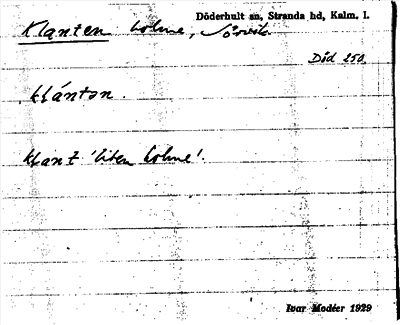 Döderhult sn, Stranda hd, Kalm. l.
Klanten holme,
Död 250.
klánton.
klant 'liten holme'.
Ivar Modéer 1929